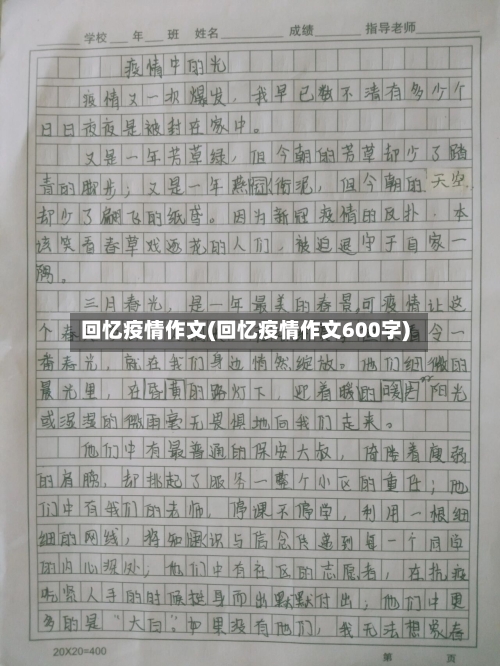 学校 年 班 姓名 成绩 指导老师
疫情中的光
疫情又一次爆发，我早已数不清有多少个
日日夜夜是被封在家中。
又是一年芳草绿，但今朝的芳草却少了踏
青的脚步；又是一年燕衔泥，但今朝的天空
却少了翩飞的纸鸢。因为新冠疫情的反扑，本
该笑看春草戏逐花的人们，被迫退守于自家一
隅。
三月春光，是一年最美的春景，可疫情让这
个春
回忆疫情作文(回忆疫情作文600字)
令一
番春光，就在我们身边悄然绽放。他们细微的
晨光里，在昏黄的路灯下，迎着暖的暖阳光
或湿湿的微雨毫无畏惧地向我们走来。
他们中有最普通的保安大叔，倚踏着瘦弱
的肩膀，却挑起了服务一整个小区的重任；他
们中有我们的老师，停课不停学，利用一根细
细的网线，将知识与信念传递到每一个同学
的内心深处；他们中有社区的志愿者，在抗疫
吃紧人手的时候挺身而出默默付出；他们中更
多的是“大白”。如果没有他们，我无法想象春
20X20=400
第 页